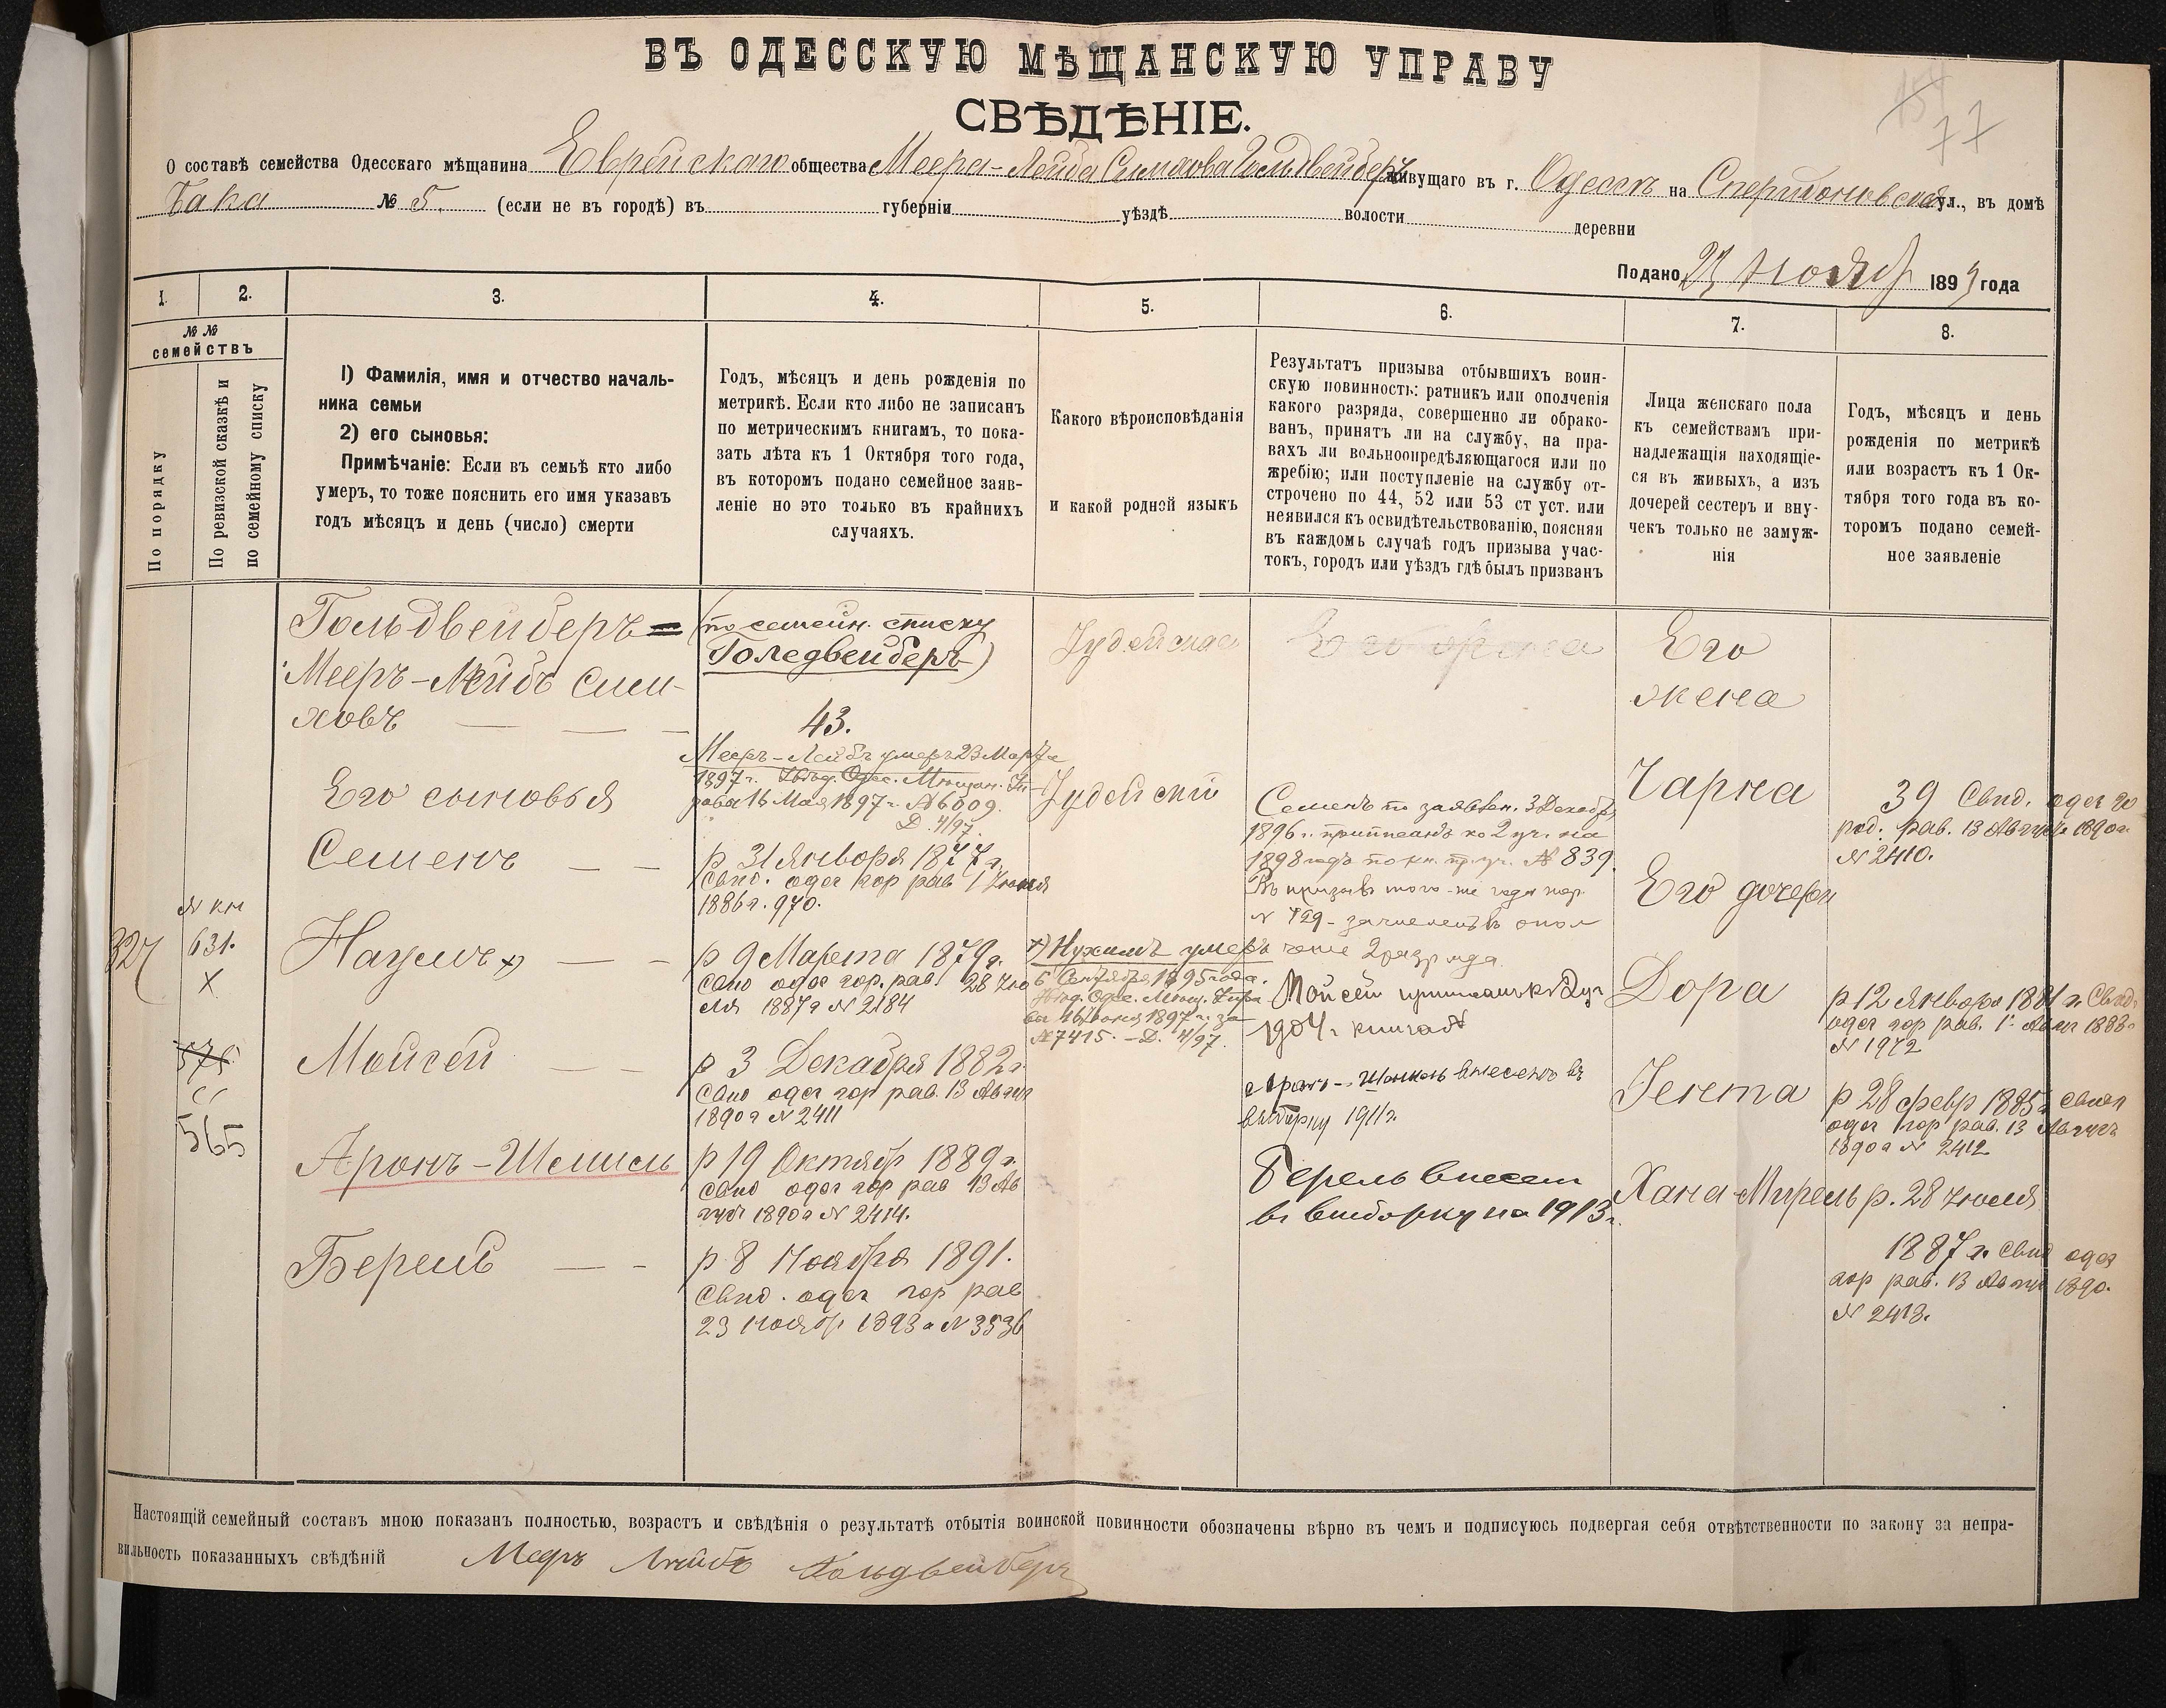 ВЪ ОДЕССКУЮ МѢЩАНСКУЮ УПРАВУ
СВѢДѢНІЕ.
77
О составѣ семейства Одесскаго мѣщанина Еврейскаго общества Меера-Лейба Симхова Гольдвейберъ живущаго въ г. Одессѣ на ул., въ домѣ
Бака № 5. (если не въ городѣ) въ губерніи уѣздѣ волости деревни
Подано 23 Ноябр 1893 года
1. 2. 3. 4. 5. 6. 7. 8.
№ № семействъ
По порядку
По ревизской сказкѣ и
по семейному списку
1) Фамилія, имя и отчество началь-
ника семьи
2) его сыновья:
Примѣчаніе: Если въ семьѣ кто либо
умеръ, то тоже пояснить его имя указавъ
годъ мѣсяцъ и день (число) смерти
Годъ, мѣсяцъ и день рожденія по
метрикѣ. Если кто либо не записанъ
по метрическимъ книгамъ, то пока-
зать лѣта къ 1 Октября того года,
въ которомъ подано семейное заяв-
леніе но это только въ крайнихъ
случаяхъ.
Какого вѣроисповѣданія
и какой родной языкъ
Результатъ призыва отбывшихъ воин-
скую повинность: ратникъ или ополченія
какого разряда, совершенно ли обрако-
ванъ, принятъ ли на службу, на пра-
вахъ ли вольноопредѣляющагося или по
жребію; или поступленіе на службу от-
строчено по 44, 52 или 53 ст уст. или
неявился къ освидѣтельствованію, поясняя
въ каждомъ случаѣ годъ призыва учас-
токъ, городъ или уѣздъ гдѣ былъ призванъ
Лица женскаго пола
къ семействамъ при-
надлежащія находящіе-
ся въ живыхъ, а изъ
дочерей сестеръ и вну-
чекъ только не замуж-
нія
Годъ, мѣсяцъ и день
рожденія по метрикѣ
или возрастъ къ 1 Ок-
тября того года въ ко-
торомъ подано семей-
ное заявленіе
327
№ кн
631.
X
576
565
Гольдвейберъ=
Мееръ-Лейбъ Сим-
ховъ
Его сыновья
Семенъ
Наумъ x)
Мойсей
Аронъ-Шмиль
Берель
(по семейн. списку
Голедвейберъ)
43.
Мееръ-Лейбъ умеръ 23 Марта
1897 г. Увѣд. Одес. Мѣщан. Уп-
рава 16 Мая 1897 г. № 6009.
Д. 4/97.
р 31 Января 1877 г.
свид. одес гор рав 1 Июня
1886 г. 970.
р 9 Марта 1879 г.
свид одес гор. рав. 28 Ию
ля 1887 г № 2184
р 3 Декабря 1882 г
свид одес гор рав. 13 Август
1890 г № 2411
р 19 Октябр 1889 г.
свид одес гор рав 13 Ав
густ 1890 г № 2414.
р 8 Ноября 1891.
свид. одес гор рав
23 Ноябр 1893 г № 3536
Іудейская
Іудейскій
x) Нухимъ умеръ
6 Сентября 1895 года.
Увѣд. Одес. Мѣщ. Упра
ва 16 Июня 1897 г. за
№ 7415. - Д. 4/97.
Семенъ по заявлен. 3 Декабр
1896 г. приписанъ ко 2 уч. на
1898 годъ по кн. пр. уч. № 839.
Въ призывъ того-же года жер.
№ 729 - зачисленъ въ опол
ченіе 2 разряда.
Мойсей приписанъ к 2 уч
1904 г. книга №
Аронъ-Шмиль внесенъ въ
выборку 1911 г.
Берель внесен
в выборку на 1913 г.
Его
жена
Чарна
Его дочери
Дора
Гента
Хана-Мирель
39 Свид. одес го
род. рав. 13 Август 1890 г.
№ 2410.
р 12 Января 1881 г. Свид.
одес гор рав. 1 Август 1883 г
№ 1972
р 28 февр 1885 г свид
одес гор рав. 13 Август
1890 г № 2412
р. 28 Июля
1887 г. свид одес
гор рав. 13 Август 1890.
№ 2413.
Настоящій семейный составъ мною показанъ полностью, возрастъ и свѣдѣнія о результатѣ отбытія воинской повинности обозначены вѣрно въ чемъ и подписуюсь подвергая себя отвѣтственности по закону за непра-
вильность показанныхъ свѣдѣній Меерь Лейбъ Гольдвейберъ